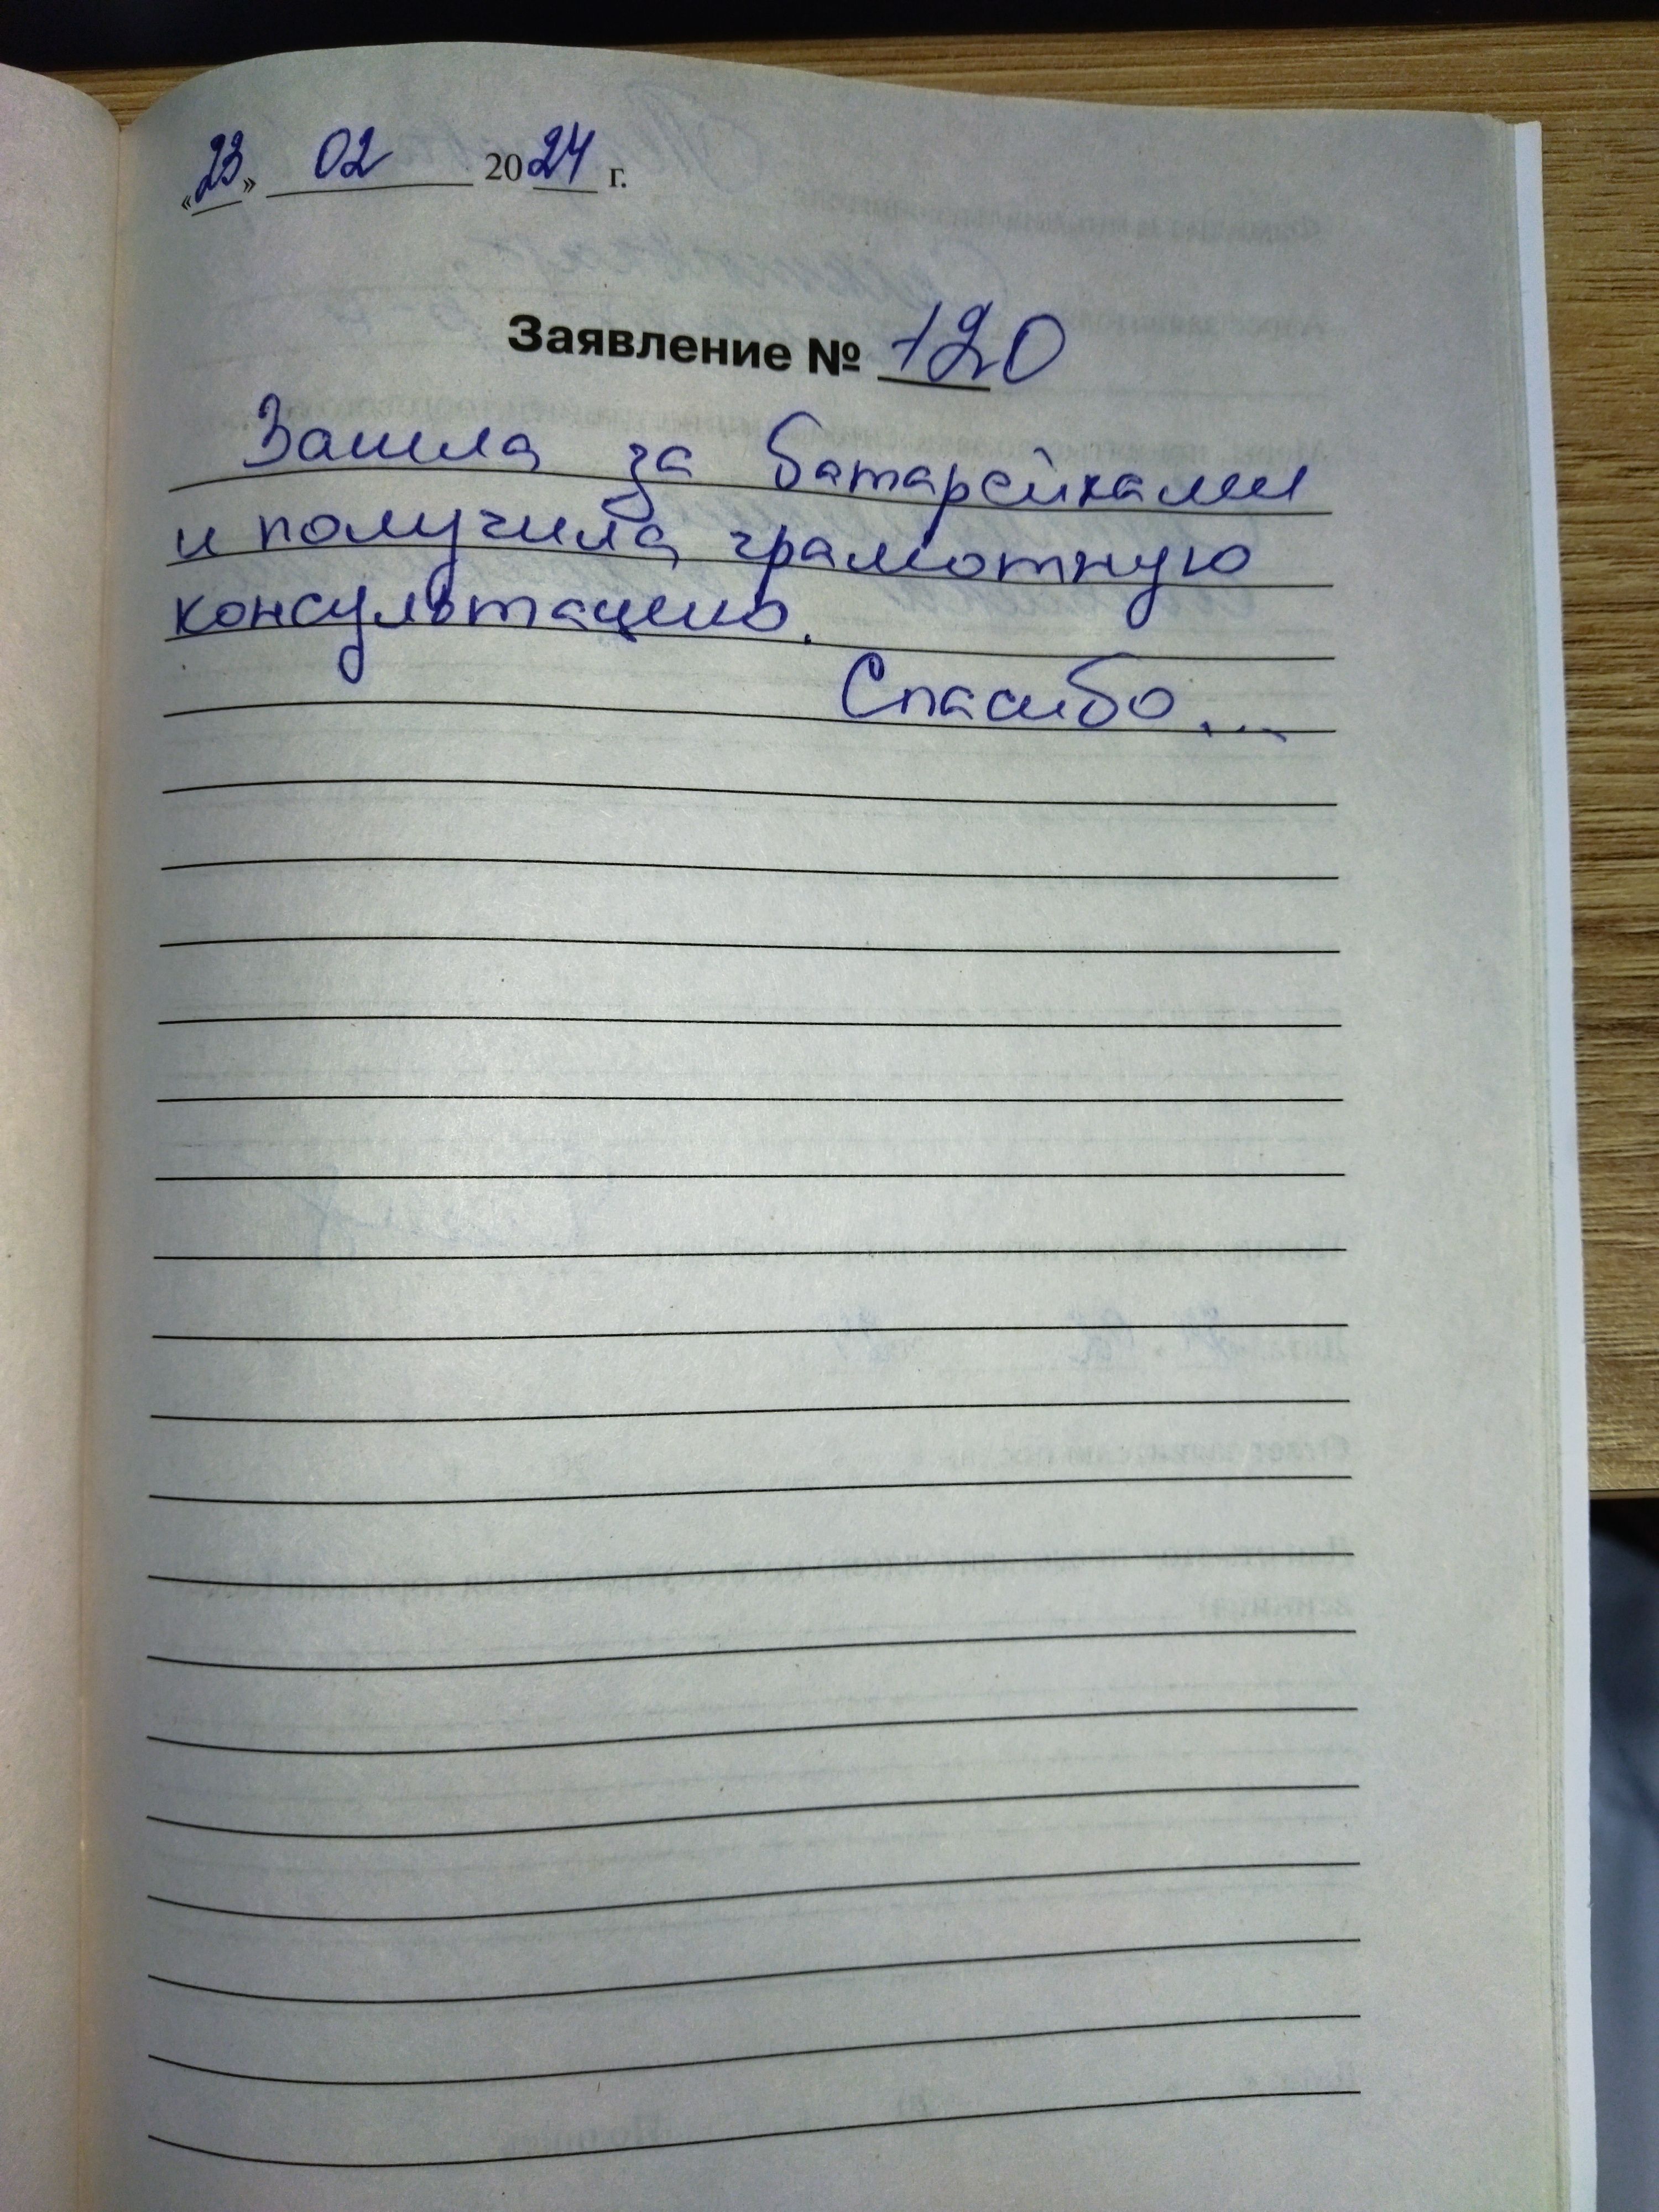 «23» 02 2024 г.
Заявление № 120
Зашла за батарейками
и получила грамотную
консультацию.
Спасибо...